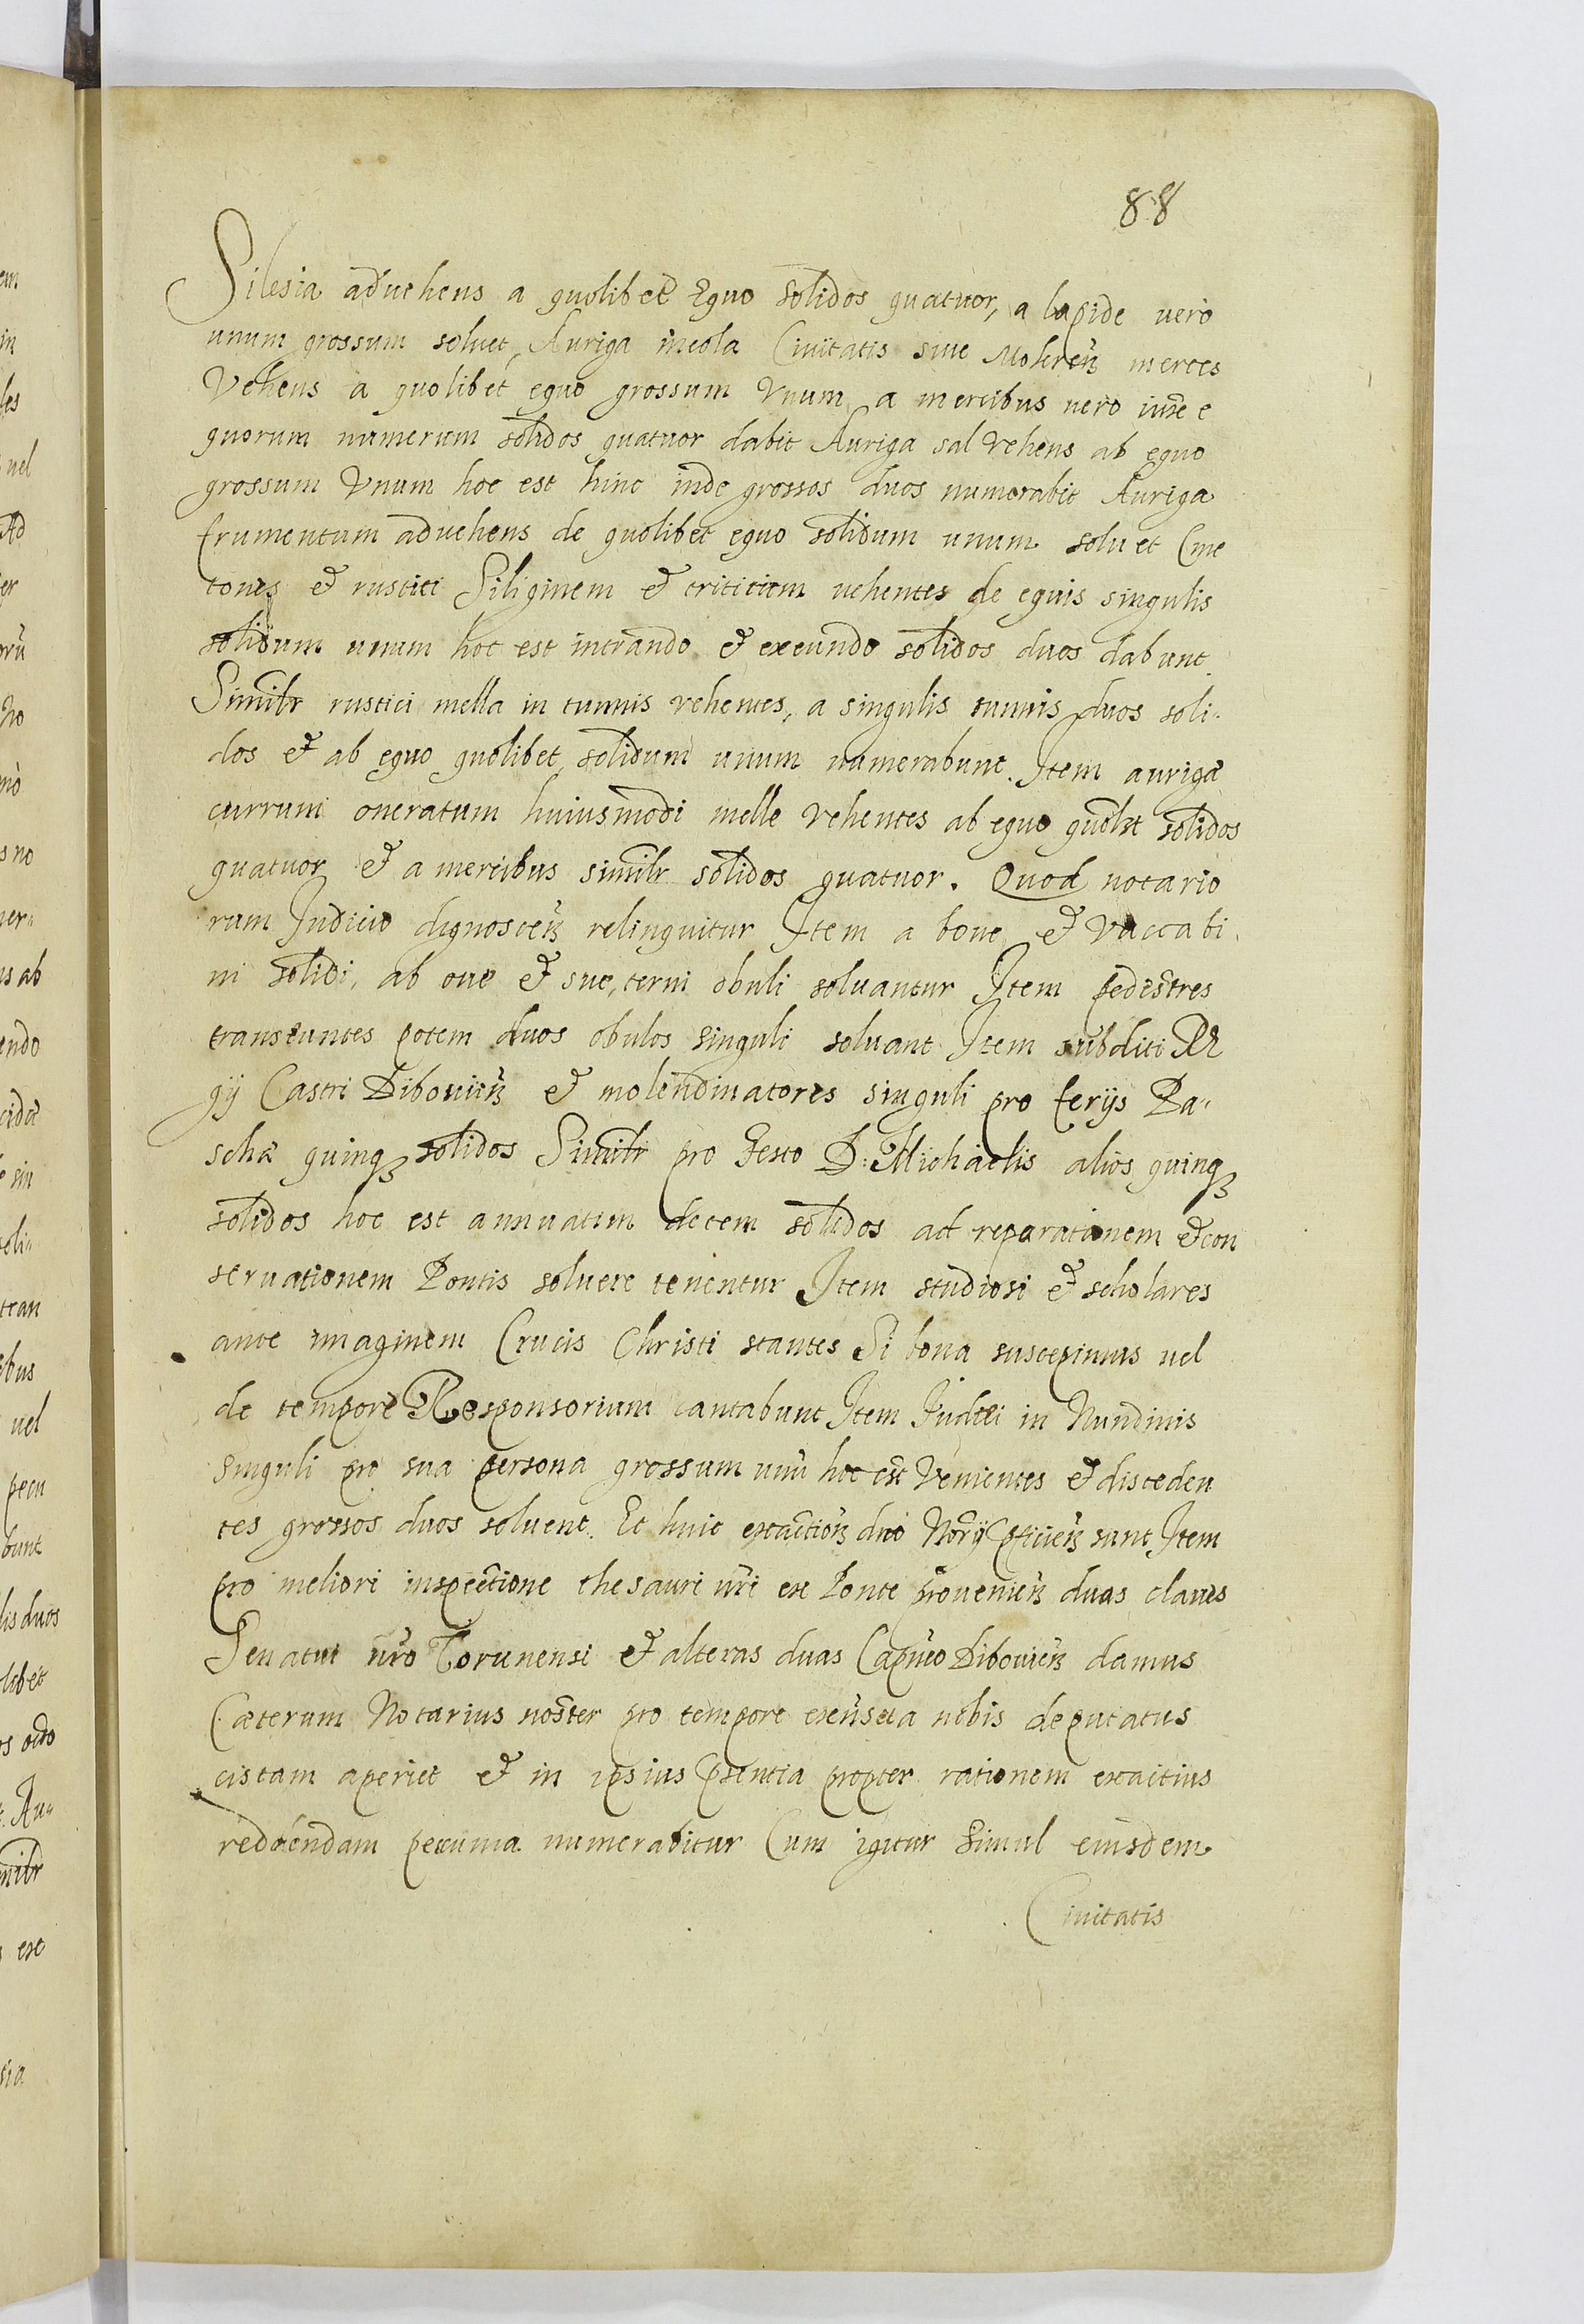 88
Silesia aduehens a quolibet Equo solidos quatuor, a lapide verò
unum grossum soluet, Auriga incola Ciuitatis siue Mokren̄ merces
Vehens a quolibet equo grossum Vnum a mercibus uero iuxta
quorum numerum solidos quatuor dabit Auriga sal Vehens ab equo
grossum Vnum hoc est hinc inde grossos duos numerabit Auriga
frumentum aduehens de quolibet equo solidum unum soluet Cme
tones et rustici Siliginem et triticum uehentes de equis singulis
solidum unum hoc est intrando et exeundo solidos duos dabunt
Similr rustici mella in tunnis vehentes, a singulis tunnis duos soli-
dos et ab equo quolibet solidum unum numerabunt. Item aurigæ
currum oneratum huiusmodi melle vehentes ab equo quolit solidos
quatuor et a mercibus similr solidos quatuor. Quod notario
rum Judicio dignoscen̄ relinquitur Item a boue et Vacca bi
ni solidi, ab oue et sue, terni obuli soluantur Item pedestres
transeuntes potem duos obulos singuli soluant Item subditi Re
gij Castri Dibouien̄ et molendinatores singuli pro ferijs Pa-
schæ quinq; solidos Similr pro Festo D: Michaelis alios quinq;
solidos hoc est annuatim decem solidos ad reparationem et con
seruationem Pontis soluere tenentur Item studiosi et scholares
ante imaginem Crucis Christi stantes Si bona suscepimus uel
de tempore Responsorium cantabunt Item Judæi in Nundinis
singuli pro sua persona grossum unū hoc est Venientes et disceden
tes grossos duos soluent. Et huic exaction̄ duo Norij sunt Item
pro meliori inspectione thesauri nrī ex Ponte prouenien̄ duas claues
Senatui nrō Torunensi et alteras duas Capneo Dibouien̄ damus
Cæterum Notarius noster pro tempore a nobis deputatus
cistam aperiet et in ipsius pſentia propter rationem exactius
reddendam pecunia numerabitur Cum igitur Simul eiusdem
Ciuitatis